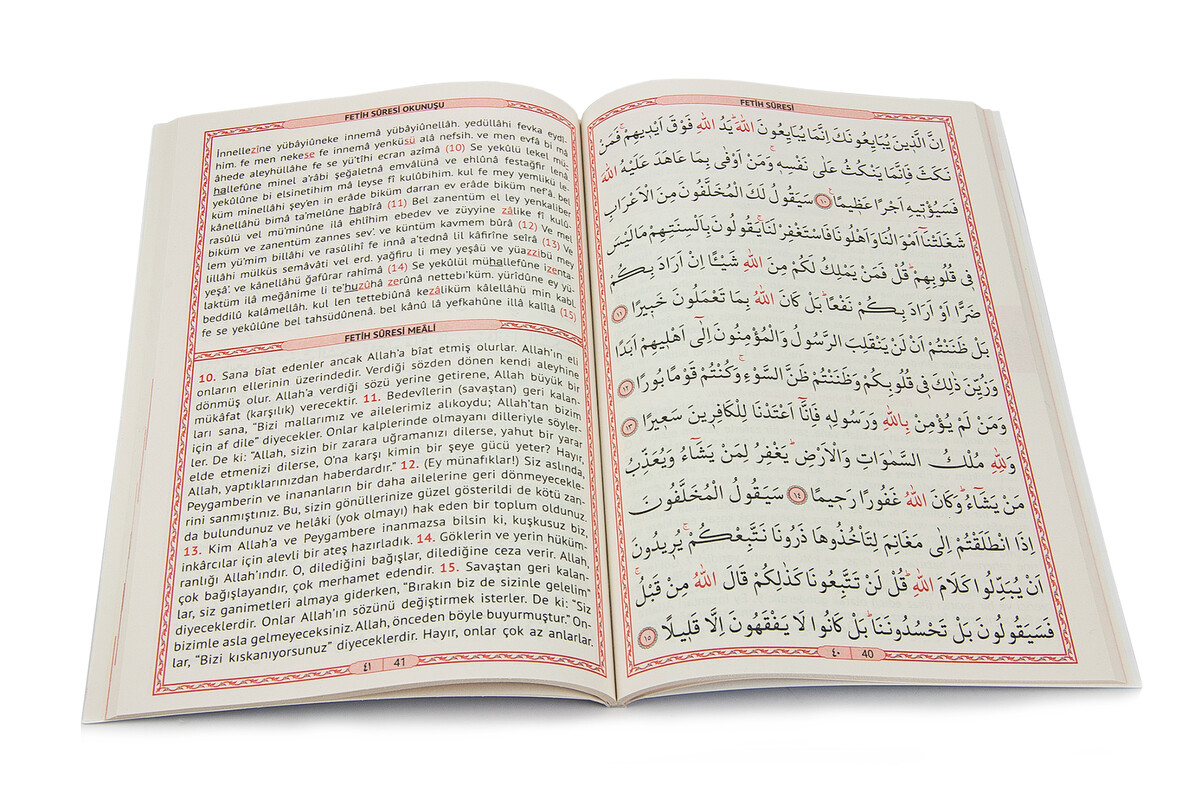 FETİH SÛRESİ
اِنَّ الَّذ۪ينَ يُبَايِعُونَكَ اِنَّمَا يُبَايِعُونَ اللّٰهَۜ يَدُ اللّٰهِ فَوْقَ اَيْد۪يهِمْۚ فَمَنْ
نَكَثَ فَاِنَّمَا يَنْكُثُ عَلٰى نَفْسِه۪ۚ وَمَنْ اَوْفٰى بِمَا عَاهَدَ عَلَيْهُ اللّٰهَ
فَسَيُؤْت۪يهِ اَجْرًا عَظ۪يمًا۟ ﴿١٠﴾ سَيَقُولُ لَكَ الْمُخَلَّفُونَ مِنَ الْاَعْرَابِ
شَغَلَتْنَٓا اَمْوَالُنَا وَاَهْلُونَا فَاسْتَغْفِرْ لَنَاۚ يَقُولُونَ بِاَلْسِنَتِهِمْ مَا لَيْسَ
ف۪ي قُلُوبِهِمْۜ قُلْ فَمَنْ يَمْلِكُ لَكُمْ مِنَ اللّٰهِ شَيْـًٔا اِنْ اَرَادَ بِكُمْ
ضَرًّا اَوْ اَرَادَ بِكُمْ نَفْعًاۜ بَلْ كَانَ اللّٰهُ بِمَا تَعْمَلُونَ خَب۪يرًا ﴿١١﴾
بَلْ ظَنَنْتُمْ اَنْ لَنْ يَنْقَلِبَ الرَّسُولُ وَالْمُؤْمِنُونَ اِلٰٓى اَهْل۪يهِمْ اَبَدًا
وَزُيِّنَ ذٰلِكَ ف۪ي قُلُوبِكُمْ وَظَنَنْتُمْ ظَنَّ السَّوْءِۚ وَكُنْتُمْ قَوْمًا بُورًا ﴿١٢﴾
وَمَنْ لَمْ يُؤْمِنْ بِاللّٰهِ وَرَسُولِه۪ فَاِنَّٓا اَعْتَدْنَا لِلْكَافِر۪ينَ سَع۪يرًا ﴿١٣﴾
وَلِلّٰهِ مُلْكُ السَّمٰوَاتِ وَالْاَرْضِۜ يَغْفِرُ لِمَنْ يَشَٓاءُ وَيُعَذِّبُ
مَنْ يَشَٓاءُۜ وَكَانَ اللّٰهُ غَفُورًا رَح۪يمًا ﴿١٤﴾ سَيَقُولُ الْمُخَلَّفُونَ
اِذَا انْطَلَقْتُمْ اِلٰى مَغَانِمَ لِتَأْخُذُوهَا ذَرُونَا نَتَّبِعْكُمْۚ يُر۪يدُونَ
اَنْ يُبَدِّلُوا كَلَامَ اللّٰهِۜ قُلْ لَنْ تَتَّبِعُونَا كَذٰلِكُمْ قَالَ اللّٰهُ مِنْ قَبْلُۚ
فَسَيَقُولُونَ بَلْ تَحْسُدُونَنَاۜ بَلْ كَانُوا لَا يَفْقَهُونَ اِلَّا قَل۪يلًا ﴿١٥﴾
٤٠ 40
FETİH SÛRESİ OKUNUŞU
İnnellezîne yübâyiûneke innemâ yübâyiûnellâh. yedüllâhi fevka eydî-
him. fe men nekese fe innemâ yenküsü alâ nefsih. ve men evfâ bi mâ
âhede aleyhüllâhe fe se yü'tîhi ecran azîmâ (10) Se yekûlü lekel mü-
hallefûne minel a'râbi şeğaletnâ emvâlünâ ve ehlûnâ festağfir lenâ.
yekûlûne bi elsinetihim mâ leyse fî kulûbihim. kul fe mey yemlikü le-
küm minellâhi şey'en in erâde biküm darran ev erâde biküm nef'â. bel
kânellâhü bimâ ta'melûne habîrâ (11) Bel zanentüm el ley yenkaliber
rasûlü vel mü'minûne ilâ ehlîhim ebedev ve züyyine zâlike fî kulû-
biküm ve zanentüm zannes sev'. ve küntüm kavmem bûrâ (12) Ve mel
lem yü'mim billâhi ve rasûlihî fe innâ a'tednâ lil kâfirîne seîrâ (13) Ve
lillâhi mülküs semâvâti vel erd. yağfiru li mey yeşâü ve yüazzibü mey
yeşâ'. ve kânellâhü ğafûrar rahîmâ (14) Se yekûlül mühallefûne izenta-
laktüm ilâ meğânime li te'huzûhâ zerûnâ nettebi'küm. yürîdûne ey yü-
beddilû kelâmellâh. kul len tettebiûnâ kezâliküm kâlellâhü min kabl.
fe se yekûlûne bel tahsüdûnenâ. bel kânû lâ yefkahûne illâ kalîlâ (15)
FETİH SÛRESİ MEÂLİ
10. Sana bîat edenler ancak Allah'a bîat etmiş olurlar. Allah'ın eli
onların ellerinin üzerindedir. Verdiği sözden dönen kendi aleyhine
dönmüş olur. Allah'a verdiği sözü yerine getirene, Allah büyük bir
mükâfat (karşılık) verecektir. 11. Bedevîlerin (savaştan) geri kalan-
ları sana, "Bizi mallarımız ve ailelerimiz alıkoydu; Allah'tan bizim
için af dile" diyecekler. Onlar kalplerinde olmayanı dilleriyle söyler-
ler. De ki: "Allah, sizin bir zarara uğramanızı dilerse, yahut bir yarar
elde etmenizi dilerse, O'na karşı kimin bir şeye gücü yeter? Hayır,
Allah, yaptıklarınızdan haberdardır." 12. (Ey münafıklar!) Siz aslında,
Peygamberin ve inananların bir daha ailelerine geri dönmeyecekle-
rini sanmıştınız. Bu, sizin gönüllerinize güzel gösterildi de kötü zan-
da bulundunuz ve helâki (yok olmayı) hak eden bir toplum oldunuz.
13. Kim Allah'a ve Peygambere inanmazsa bilsin ki, kuşkusuz biz,
inkârcılar için alevli bir ateş hazırladık. 14. Göklerin ve yerin hüküm-
ranlığı Allah'ındır. O, dilediğini bağışlar, dilediğine ceza verir. Allah,
çok bağışlayandır, çok merhamet edendir. 15. Savaştan geri kalan-
lar, siz ganimetleri almaya giderken, "Bırakın biz de sizinle gelelim"
diyeceklerdir. Onlar Allah'ın sözünü değiştirmek isterler. De ki: "Siz
bizimle asla gelmeyeceksiniz. Allah, önceden böyle buyurmuştur." On-
lar, "Bizi kıskanıyorsunuz" diyeceklerdir. Hayır, onlar çok az anlarlar.
٤١ 41